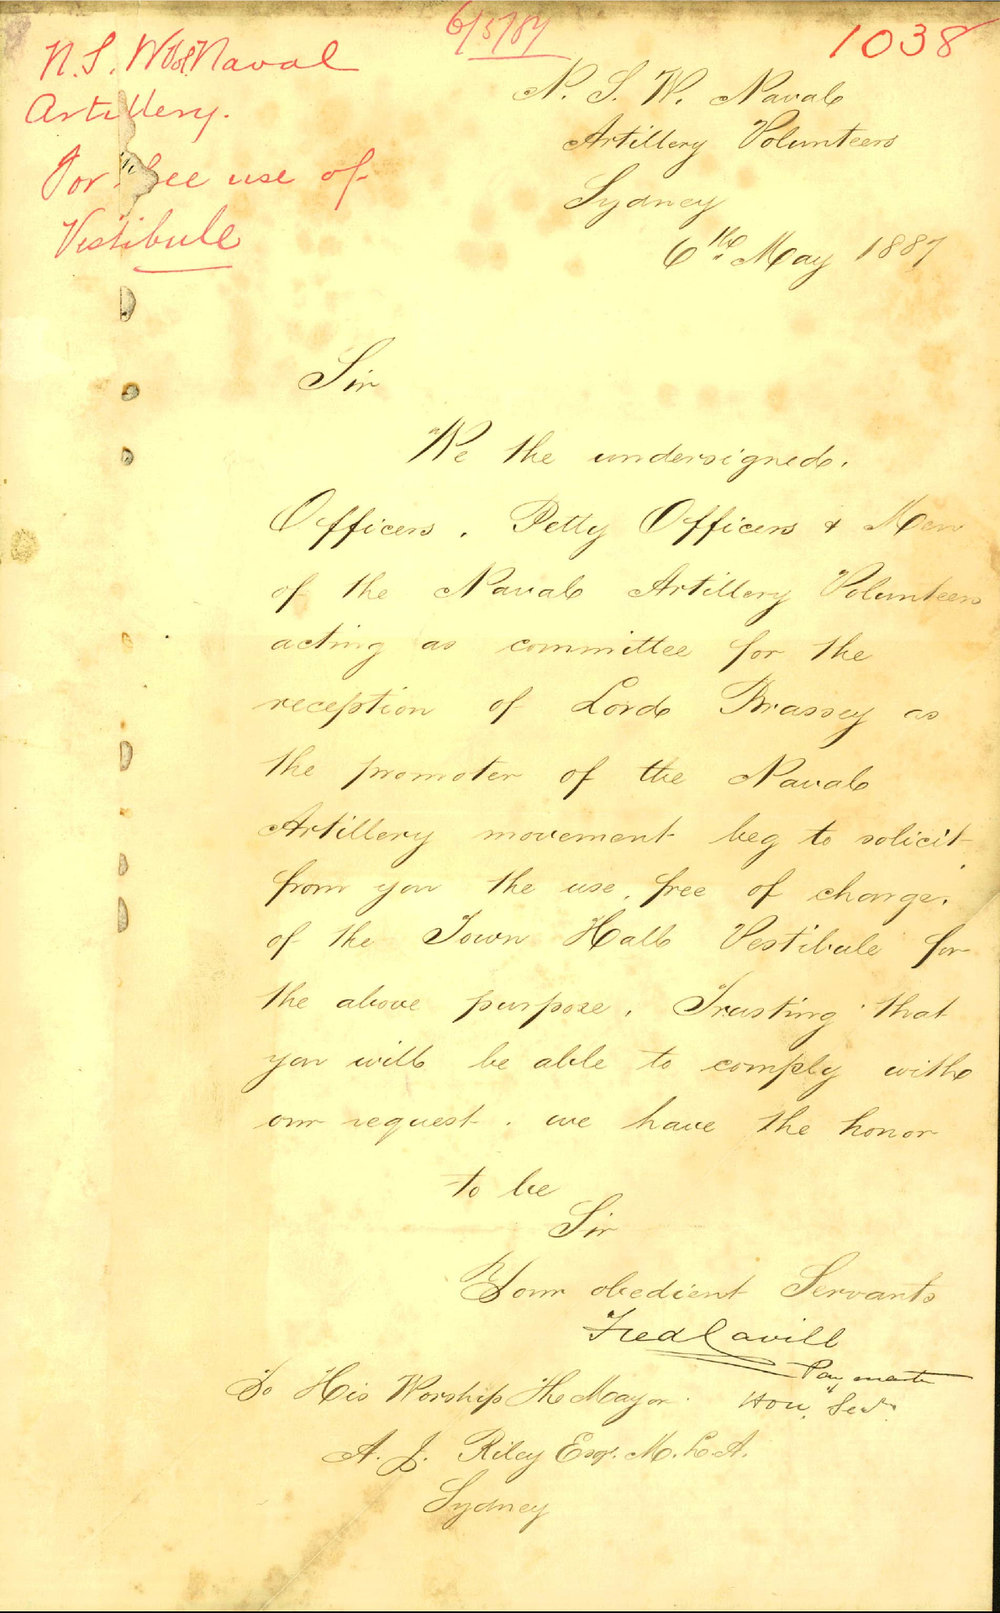 N. S. W. Naval
Artillery.
For free use of
Vestibule
6/5/87
1038
N. S. W. Naval
Artillery Volunteers
Sydney
6th May 1887
Sir
We the undersigned.
Officers, Petty Officers & Men
of the Naval Artillery Volunteers
acting as committee for the
reception of Lord Brassey as
the promoter of the Naval
Artillery movement beg to solicit
from you the use, free of charge,
of the Town Hall Vestibule for
the above purpose. Trusting that
you will be able to comply with
our request. we have the honor
to be
Sir
Your obedient Servants
Fred Cavill
Paymaster
Hon. Sec.
To His Worship The Mayor.
A. J. Riley Esqr. M.L.A.
Sydney